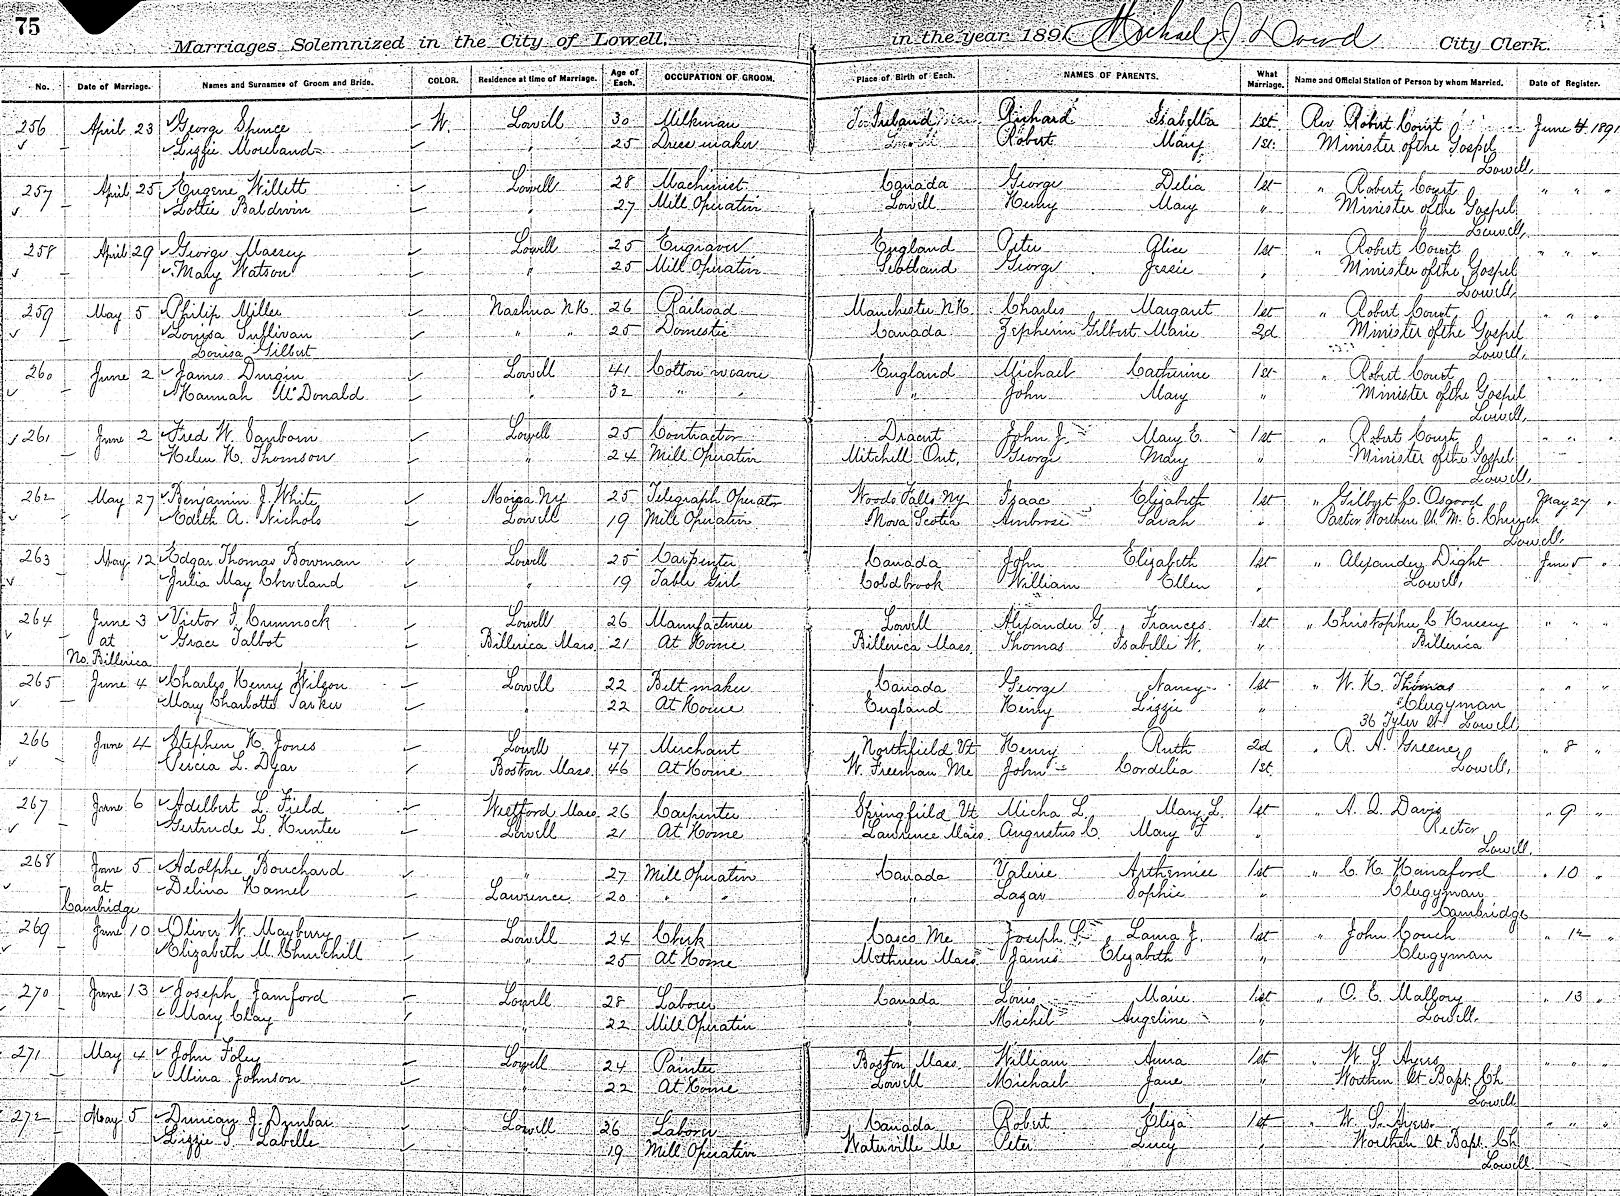 75
Marriages Solemnized in the City of Lowell, in the year 1891 Michael J. Dowd City Clerk.
No. Date of Marriage. Names and Surnames of Groom and Bride. COLOR. Residence at time of Marriage. Age of Each. OCCUPATION OF GROOM. Place of Birth of Each. NAMES OF PARENTS. What Marriage. Name and Official Station of Person by whom Married. Date of Register.
256 April 23 George Spence W. Lowell 30 Milkman Ireland Richard Isabella 1st Rev Robert Court June 4 1891
Lizzie Moreland " 25 Dress maker Lowell Robert Mary 1st Minister of the Gospel
Lowell,
257 April 25 Eugene Willett Lowell 28 Machinist Canada George Delia 1st " Robert Court " " "
Lottie Baldwin " 27 Mill Operative Lowell Henry Mary " Minister of the Gospel
Lowell,
258 April 29 George Massey Lowell 25 Engraver England Peter Alice 1st " Robert Court " " "
Mary Watson " 25 Mill Operative Scotland George Jessie " Minister of the Gospel
Lowell,
259 May 5 Philip Miller Nashua N.H. 26 Railroad Manchester N.H. Charles Margaret 1st " Robert Court " " "
Louisa Sullivan " " 25 Domestic Canada Zepherin Gilbert Marie 2d Minister of the Gospel
Louisa Gilbert Lowell,
260 June 2 James Durgin Lowell 41 Cotton weaver England Michael Catherine 1st " Robert Court " " "
Hannah McDonald " 32 " " " John Mary " Minister of the Gospel
Lowell,
261 June 2 Fred W. Sanborn Lowell 25 Contractor Dracut John J. Mary E. 1st " Robert Court " " "
Helen H. Thomson " 24 Mill Operative Mitchell Ont, George Mary " Minister of the Gospel
Lowell,
262 May 27 Benjamin J. White Moira Ny 25 Telegraph Operator Woods Falls Ny Isaac Elizabeth 1st " Gilbert C. Osgood May 27 "
Edith A. Nichols Lowell 19 Mill Operative Nova Scotia Ambrose Sarah " Pastor Worthen St. M. E. Church
Lowell.
263 May 12 Edgar Thomas Bowman Lowell 25 Carpenter Canada John Elizabeth 1st " Alexander Dight June 5 "
Julia May Cleveland " 19 Table Girl Coldbrook William Ellen " Lowell,
264 June 3 Victor I. Cumnock Lowell 26 Manufacturer Lowell Alexander G. Frances 1st " Christopher C Hussey " " "
at Grace Talbot Billerica Mass. 21 At Home Billerica Mass. Thomas Isabelle W. " Billerica
No. Billerica
265 June 4 Charles Henry Wilson Lowell 22 Belt maker Canada George Nancy 1st " W. H. Thomas " " "
Mary Charlotte Parker " 22 At Home England Henry Lizzie " Clergyman
36 Tyler St Lowell,
266 June 4 Stephen H. Jones Lowell 47 Merchant Northfield Vt. Henry Ruth 2d " R. A. Greene " 8 "
L. Dyar Boston Mass. 46 At Home W. Freeman Me John Cordelia 1st. Lowell,
267 June 6 Adelbert L. Field Westford Mass. 26 Carpenter Springfield Vt. Micha L. Mary L. 1st " A. Q. Davis " 9 "
Gertrude L. Hunter Lowell 21 At Home Lawrence Mass. Augustus C. Mary F. " Rector
Lowell.
268 June 5 Adolphe Bouchard " 27 Mill Operative Canada Valerie Arthemise 1st " C. H. Hanaford " 10 "
at Delina Hamel Lawrence. 20 " " " Lazar Sophie " Clergyman
Cambridge Cambridge
269 June 10 Oliver W. Maybury Lowell 24 Clerk Casco Me Joseph S. Laura J. 1st " John Couch " 12 "
Elizabeth M. Churchill " 25 At Home Methuen Mass. James Elizabeth " Clergyman
270 June 13 Joseph Jamford Lowell 28 Laborer Canada Louis Marie 1st " O. E. Mallory " 13 "
Mary Clay " 22 Mill Operative " Michel Angeline " Lowell.
271 May 4 John Foley Lowell 24 Painter Boston Mass. William Anna 1st " W. S. Ayers " " "
Mina Johnson " 22 At Home Lowell Michael Jane " Worthen St Bapt. Ch
Lowell
272 May 5 Duncan J. Dunbar Lowell 26 Laborer Canada Robert Eliza 1st " W. S. Ayers. " " "
Lizzie S. Labelle " 19 Mill Operative Waterville Me Peter Lucy " Worthen St Bapt. Ch
Lowell